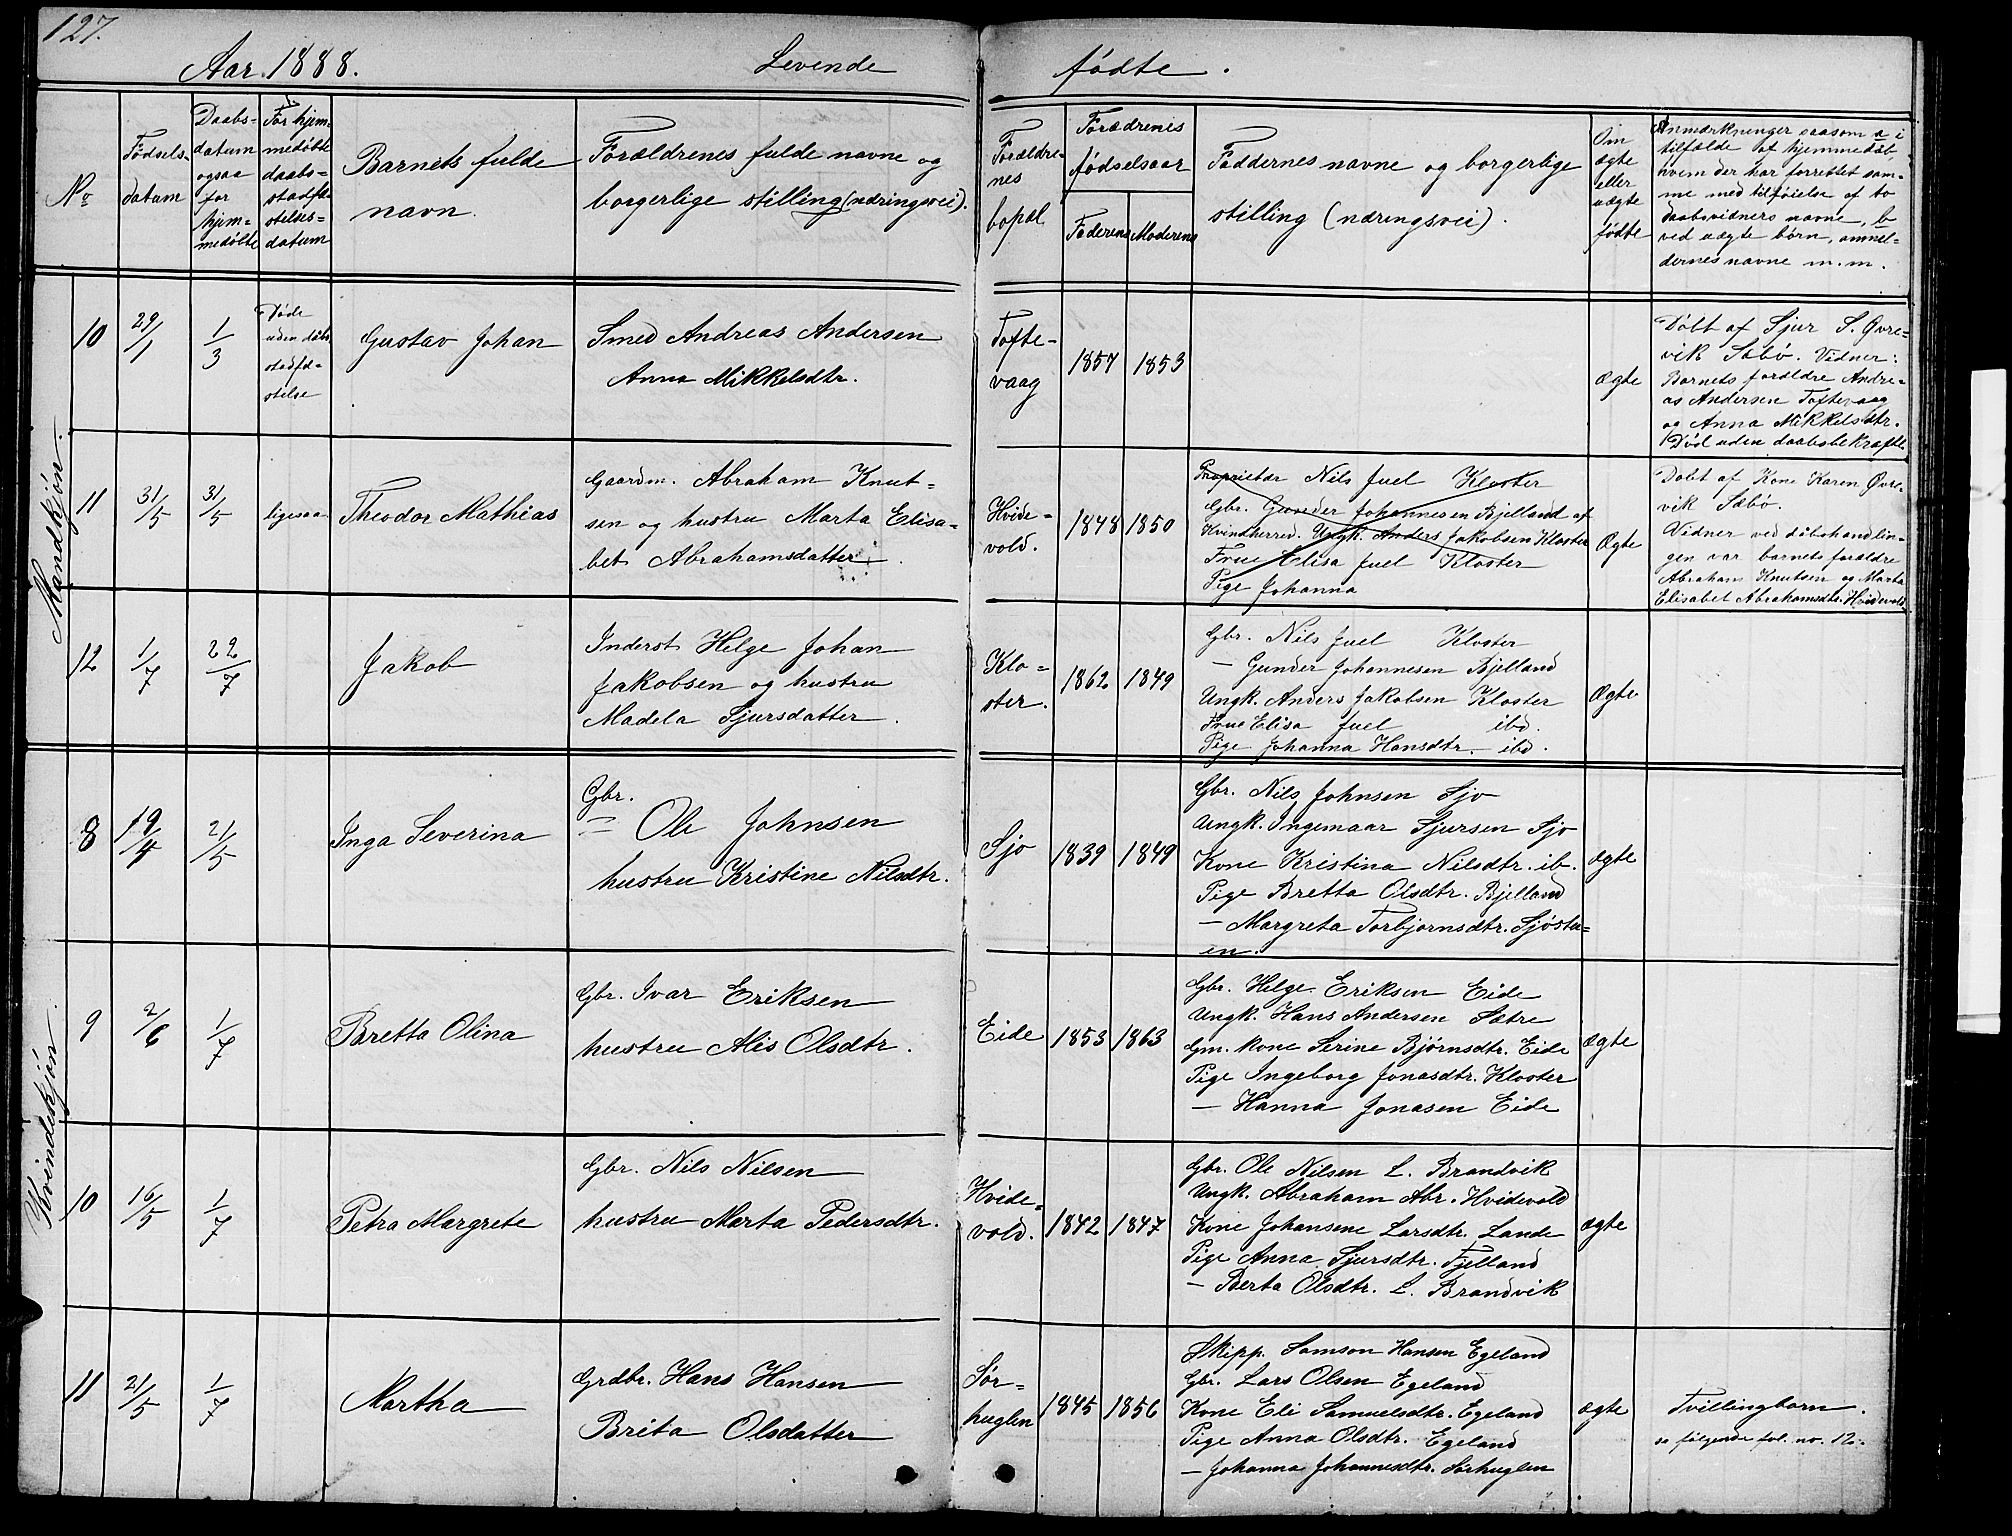 127.
Aar. 1888. Levende fødte.
No
Fødsels-
datum
Daabs-
datum
ogsaa
for
hjem-
medøbte
For hjem-
medøbte
daabs-
stadfæ-
stelses-
datum
Barnets fulde
navn.
Forældrenes fulde navne og
borgerlige stilling (næringsvei).
Forældre-
nes
bopæl
Forædrenes
fødselsaar
Faderens Moderens
Faddernes navne og borgerlige
stilling (næringsvei).
Om
ægte
eller
uægte
fødte
Anmærkninger saasom a i
tilfælde af hjemmedøb,
hvem der har forrettet sam-
me med tilføielse af to
daabsvidners navne, b
ved uægte børn, anmel-
dernes navne m.m.
Mandkjøn.
10 29/1 1/3
Døde
uden dåbs
stadfæ-
stelse
Gustav Johan
Smed Andreas Andersen
Anna Mikkelsdtr.
Tofte-
vaag
1857 1853
ægte
Døbt af Sjur S. Øvre-
vik Sæbø. Vidner:
Barnets forældre Andre-
as Andersen Toftevaag
og Anna Mikkelsdtr.
Død uden daabsbekræfte
11 31/5 31/5 ligesaa
Theodor Mathias
Gaardm. Abraham Knut-
sen og hustru Marta Elisa-
bet Abrahamsdatter.
Hvide-
vold.
1848 1850
Proprietær Nils Juel Kloster
Gbr. Gunder Johannesen Bjelland af
Kvindherred. Ungk. Anders Jakobsen Kloster
Frue Elisa Juel Kloster
Pige Johanna
Ægte
Døbt af Kone Karen Øvre-
vik Sæbø.
Vidner ved dåbshandlin-
gen var barnets forældre
Abraham Knutsen og Marta
Elisabet Abrahamsdtr. Hvidevold
12 1/7 22/7
Jakob
Inderst Helge Johan
Jakobsen og hustru
Madela Sjursdatter.
Klo-
ster.
1862 1849
Gbr. Nils Juel Kloster
— Gunder Johannesen Bjelland
Ungk. Anders Jakobsen Kloster
Frue Elisa Juel ibd.
Pige Johanna Hansdtr. — ibd.
Ægte
Kvindekjøn.
8 19/4 21/5
Inga Severina
Gbr.
— Ole Johnsen
hustru Kristine Nilsdtr.
Sjo
1839 1849
Gbr. Nils Johnsen Sjo
Ungk. Ingemaar Sjursen Sjo
Kone Kristina Nilsdtr. ib.
Pige Bretta Olsdtr. Bjelland
— Margreta Torbjornsdtr. Sjøstu-
en.
ægte
9 2/6 1/7
Bretta Olina
Gbr. Ivar Eriksen
hustru Alis Olsdtr.
Eide
1853 1863
Gbr. Helge Eriksen Eide
Ungk. Hans Andersen Sætre
Gm. kone Serine Bjørnsdtr. Eide
Pige Ingeborg Jonasdtr. Kloster
— Hanna Jonasen Eide
ægte
10 16/5 1/7
Petra Margrete
Gbr. Nils Nilsen
hustru Marta Pedersdtr.
Hvide-
vold.
1842 1847
Gbr. Ole Nilsen L. Brandvik
Ungk. Abraham Abr. Hvidevold
Kone Johansene Larsdtr. Lande
Pige Anna Sjursdtr. Fjelland
— Berta Olsdtr. L. Brandvik
ægte
11 21/5 1/7
Martha
Grdbr. Hans Hansen
Brita Olsdatter
Sør-
huglen
1845 1856
Skipp. Samson Hansen Egeland
Gbr. Lars Olsen Egeland
Kone Eli Samuelsdtr. Egeland
Pige Anna Olsdtr. Egeland
— Johanna Johannesdtr. Sørhuglen
ægte
Tvillingbarn.
se følgende fol. no. 12.